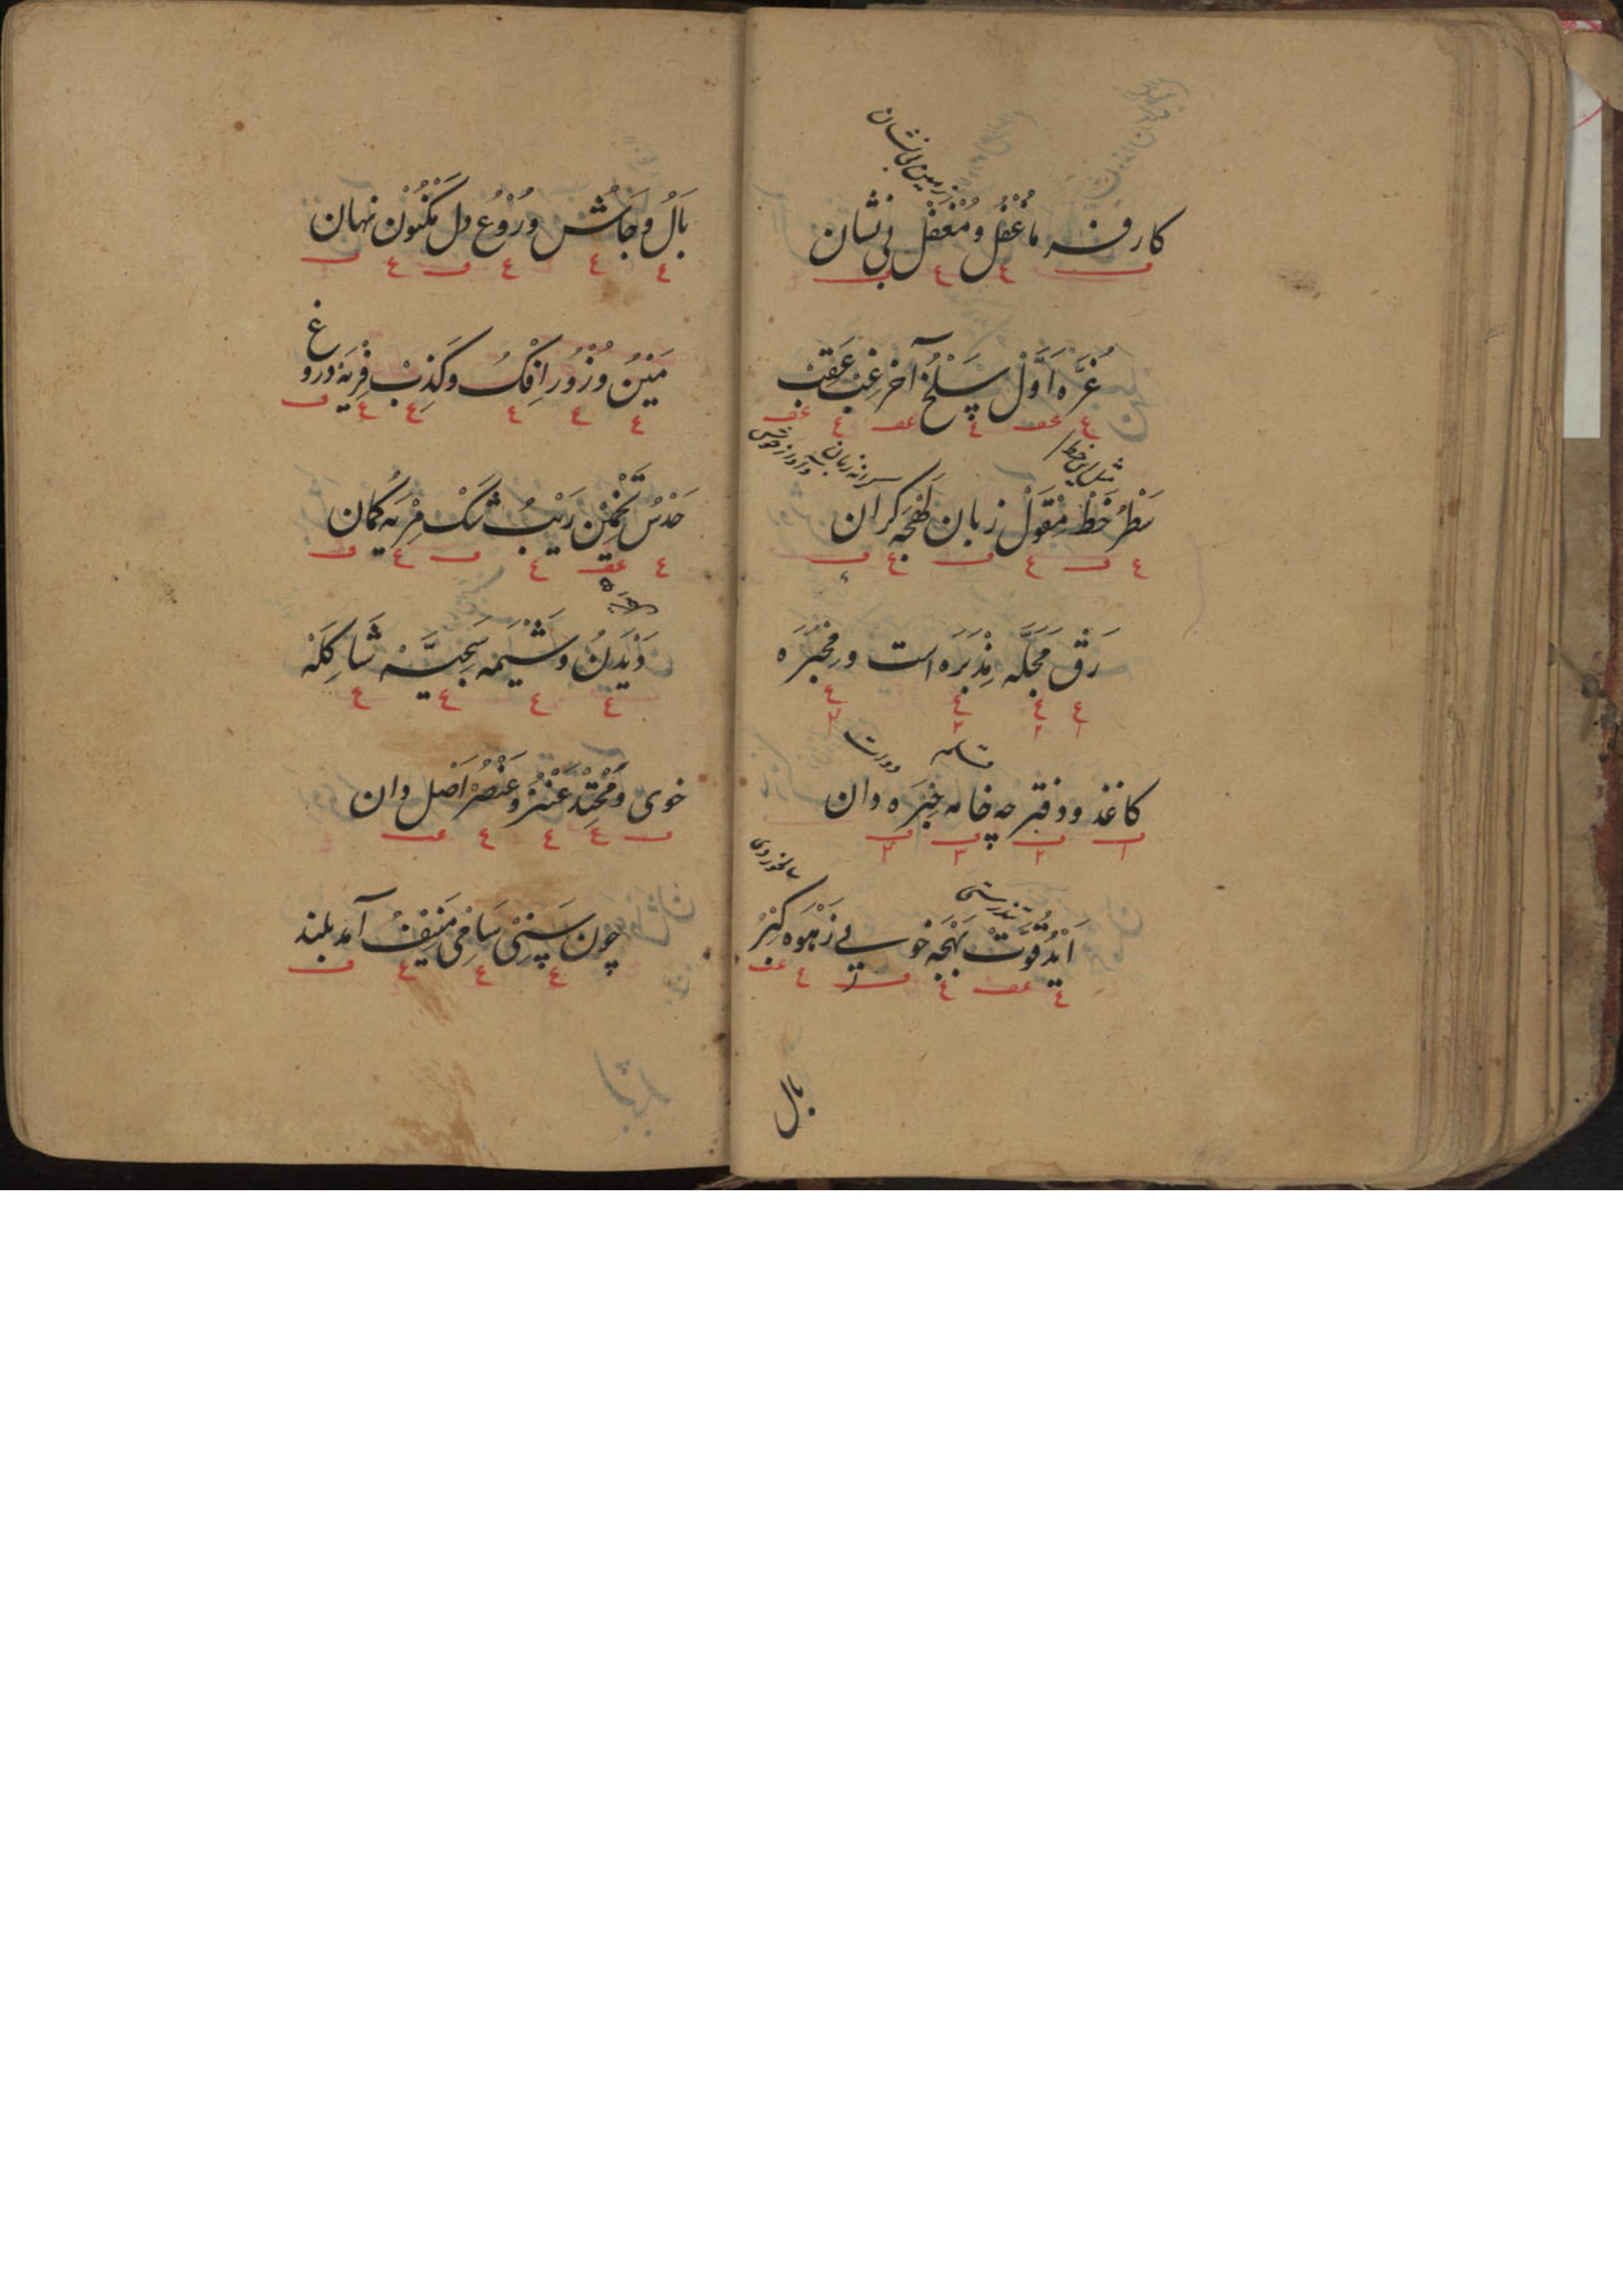 زمین بی نشان
کار فرما غُفْل و مُغْفَل بی نشان
غُرَّه اَوَّل سَلْخ آخر غِبّ عَقِبْ
مثل این خط
سَطْرُ خَطْ مِقْوَلْ زبان لَهْجَه کران
رَقّ مَجَلَّه مِذْبَرَه است و مِحْبَرَه
کاغذ و دفتر چه خامه حِبَره دان
تندرستی
اَیْدُ قُوَّتْ بَهْجَه خوبی زَهْوَه کِبْرْ
بال
بَالُ و جَاشُ و رُوْع دل مَکْنُوْن نهان
مَیْنُ و زُوْر اِفْکُ و کَذِبْ فِرْیَه دروغ
حَدْسُ تَخْمِیْن رَیْبُ شک مِرْیَه گمان
دَیْدَنُ و شِیْمَه سَجِیَّه شَاکِلَهْ
خوی و مَحْتِدْ عُنْصُرُ و عُنْصَرْ اَصْل دان
چون سَنِیْ سَامِی مُنِیْفُ آمد بلند